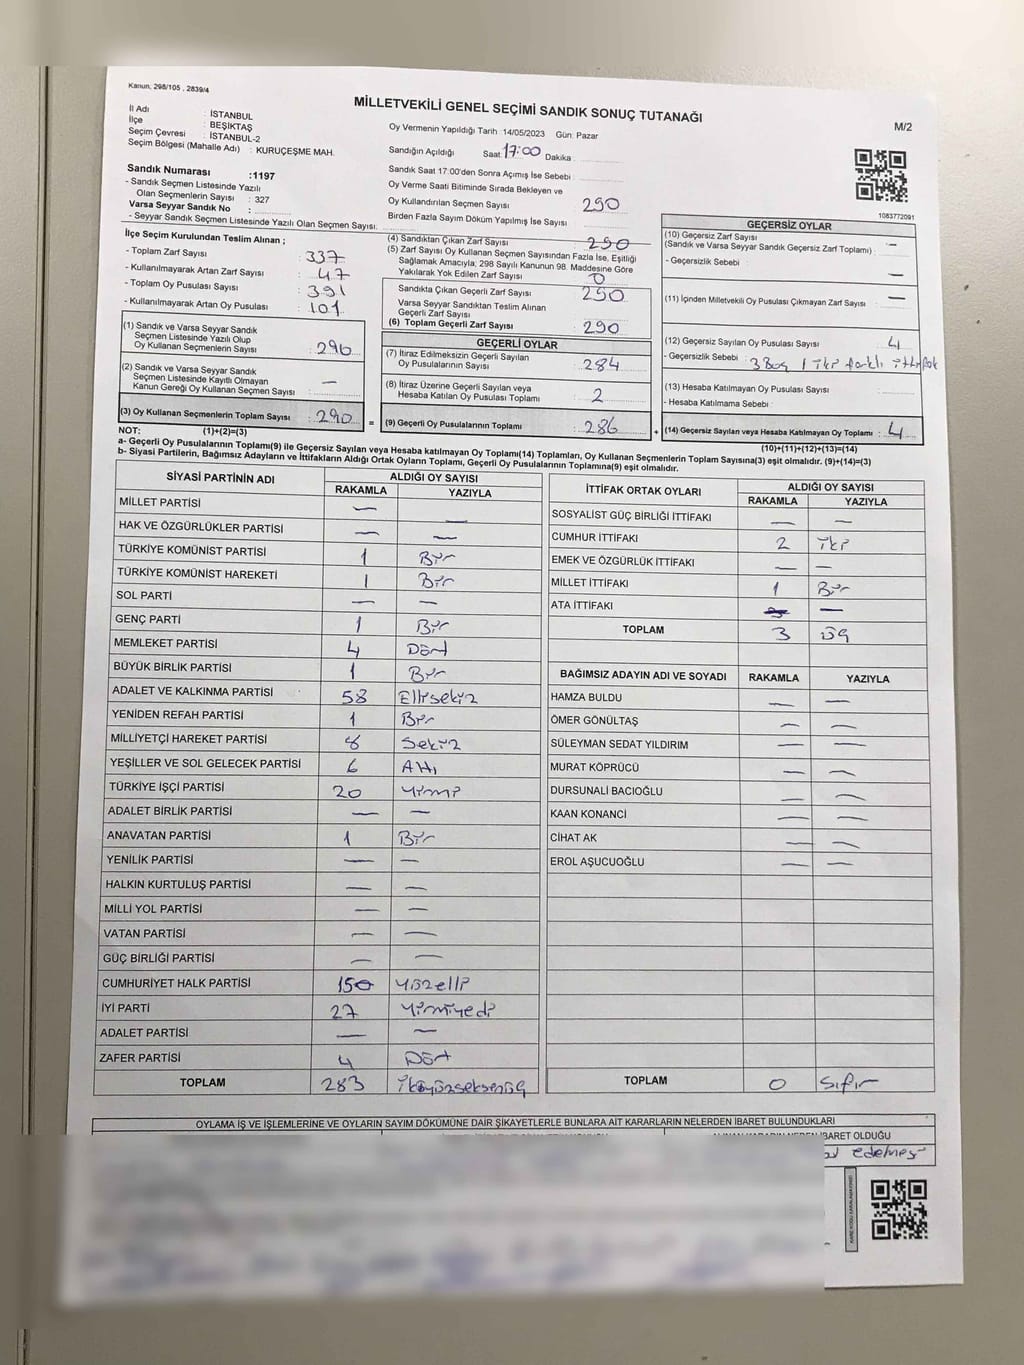 Kanun. 298/105 , 2839/4
MİLLETVEKİLİ GENEL SEÇİMİ SANDIK SONUÇ TUTANAĞI
M/2
İl Adı : İSTANBUL
İlçe : BEŞİKTAŞ
Seçim Çevresi : İSTANBUL-2
Seçim Bölgesi (Mahalle Adı) : KURUÇEŞME MAH.
Sandık Numarası :1197
- Sandık Seçmen Listesinde Yazılı
Olan Seçmenlerin Sayısı : 327
Varsa Seyyar Sandık No :
- Seyyar Sandık Seçmen Listesinde Yazılı Olan Seçmen Sayısı.
Oy Vermenin Yapıldığı Tarih :14/05/2023 Gün: Pazar
Sandığın Açıldığı Saat: 17:00 Dakika
Sandık Saat 17:00'den Sonra Açımış İse Sebebi :
Oy Verme Saati Bitiminde Sırada Bekleyen ve
Oy Kullandırılan Seçmen Sayısı : 290
Birden Fazla Sayım Döküm Yapılmış İse Sayısı
1083772091
İlçe Seçim Kurulundan Teslim Alınan ;
- Toplam Zarf Sayısı : 337
- Kullanılmayarak Artan Zarf Sayısı : 47
- Toplam Oy Pusulası Sayısı : 391
- Kullanılmayarak Artan Oy Pusulası : 101
(1) Sandık ve Varsa Seyyar Sandık
Seçmen Listesinde Yazılı Olup
Oy Kullanan Seçmenlerin Sayısı : 290
(2) Sandık ve Varsa Seyyar Sandık
Seçmen Listesinde Kayıtlı Olmayan
Kanun Gereği Oy Kullanan Seçmen Sayısı : —
(3) Oy Kullanan Seçmenlerin Toplam Sayısı : 290
(4) Sandıktan Çıkan Zarf Sayısı : 290
(5) Zarf Sayısı Oy Kullanan Seçmen Sayısından Fazla İse, Eşitliği
Sağlamak Amacıyla, 298 Sayılı Kanunun 98. Maddesine Göre
Yakılarak Yok Edilen Zarf Sayısı : 0
Sandıkta Çıkan Geçerli Zarf Sayısı : 290
Varsa Seyyar Sandıktan Teslim Alınan
Geçerli Zarf Sayısı
(6) Toplam Geçerli Zarf Sayısı : 290
GEÇERLİ OYLAR
(7) İtiraz Edilmeksizin Geçerli Sayılan
Oy Pusulalarının Sayısı : 284
(8) İtiraz Üzerine Geçerli Sayılan veya
Hesaba Katılan Oy Pusulası Toplamı : 2
= (9) Geçerli Oy Pusulalarının Toplamı : 286
GEÇERSİZ OYLAR
(10) Geçersiz Zarf Sayısı
(Sandık ve Varsa Seyyar Sandık Geçersiz Zarf Toplamı) : —
- Geçersizlik Sebebi : —
(11) İçinden Milletvekili Oy Pusulası Çıkmayan Zarf Sayısı : —
(12) Geçersiz Sayılan Oy Pusulası Sayısı : 4
- Geçersizlik Sebebi : 3 Boş 1 iki farklı ittifak
(13) Hesaba Katılmayan Oy Pusulası Sayısı
- Hesaba Katılmama Sebebi :
+ (14) Geçersiz Sayılan veya Hesaba Katılmayan Oy Toplamı : 4
NOT: (1)+(2)=(3)
(10)+(11)+(12)+(13)=(14)
a- Geçerli Oy Pusulalarının Toplamı(9) ile Geçersiz Sayılan veya Hesaba katılmayan Oy Toplamı(14) Toplamları, Oy Kullanan Seçmenlerin Toplam Sayısına(3) eşit olmalıdır. (9)+(14)=(3)
b- Siyasi Partilerin, Bağımsız Adayların ve İttifakların Aldığı Ortak Oyların Toplamı, Geçerli Oy Pusulalarının Toplamına(9) eşit olmalıdır.
SİYASİ PARTİNİN ADI ALDIĞI OY SAYISI
RAKAMLA YAZIYLA
MİLLET PARTİSİ — —
HAK VE ÖZGÜRLÜKLER PARTİSİ — —
TÜRKİYE KOMÜNİST PARTİSİ 1 Bir
TÜRKİYE KOMÜNİST HAREKETİ 1 Bir
SOL PARTİ — —
GENÇ PARTİ 1 Bir
MEMLEKET PARTİSİ 4 Dört
BÜYÜK BİRLİK PARTİSİ 1 Bir
ADALET VE KALKINMA PARTİSİ 58 Ellisekiz
YENİDEN REFAH PARTİSİ 1 Bir
MİLLİYETÇİ HAREKET PARTİSİ 8 Sekiz
YEŞİLLER VE SOL GELECEK PARTİSİ 6 Altı
TÜRKİYE İŞÇİ PARTİSİ 20 Yirmi
ADALET BİRLİK PARTİSİ — —
ANAVATAN PARTİSİ 1 Bir
YENİLİK PARTİSİ — —
HALKIN KURTULUŞ PARTİSİ — —
MİLLİ YOL PARTİSİ — —
VATAN PARTİSİ — —
GÜÇ BİRLİĞİ PARTİSİ — —
CUMHURİYET HALK PARTİSİ 150 Yüzelli
İYİ PARTİ 27 Yirmiyedi
ADALET PARTİSİ — —
ZAFER PARTİSİ 4 Dört
TOPLAM 283 İkiyüzseksenüç
İTTİFAK ORTAK OYLARI ALDIĞI OY SAYISI
RAKAMLA YAZIYLA
SOSYALİST GÜÇ BİRLİĞİ İTTİFAKI — —
CUMHUR İTTİFAKI 2 iki
EMEK VE ÖZGÜRLÜK İTTİFAKI — —
MİLLET İTTİFAKI 1 Bir
ATA İTTİFAKI —
TOPLAM 3 üç
BAĞIMSIZ ADAYIN ADI VE SOYADI RAKAMLA YAZIYLA
HAMZA BULDU — —
ÖMER GÖNÜLTAŞ — —
SÜLEYMAN SEDAT YILDIRIM — —
MURAT KÖPRÜCÜ — —
DURSUNALİ BACIOĞLU — —
KAAN KONANCİ — —
CİHAT AK — —
EROL AŞUCUOĞLU — —
TOPLAM 0 Sıfır
OYLAMA İŞ VE İŞLEMLERİNE VE OYLARIN SAYIM DÖKÜMÜNE DAİR ŞİKAYETLERLE BUNLARA AİT KARARLARIN NELERDEN İBARET BULUNDUKLARI
İBARET OLDUĞU